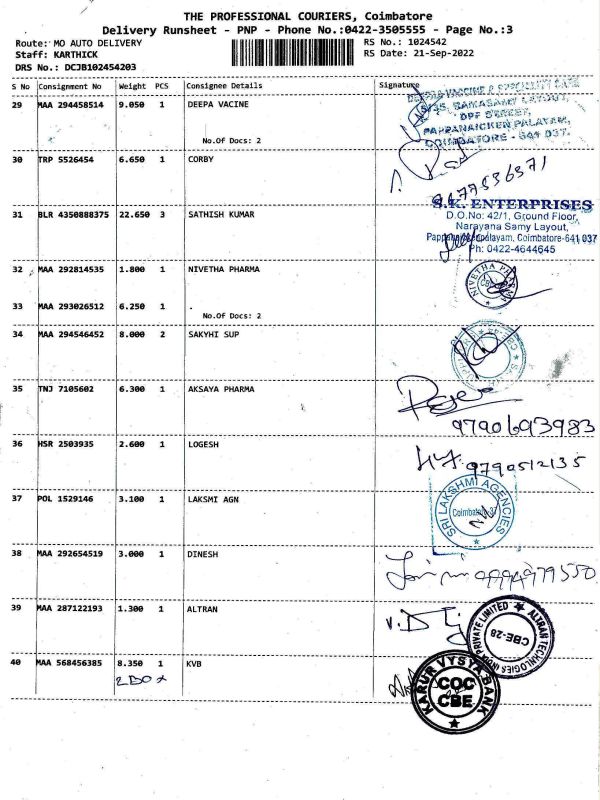 THE PROFESSIONAL COURIERS, Coimbatore
Delivery Runsheet - PNP - Phone No.:0422-3505555 - Page No.:3
Route: MO AUTO DELIVERY
RS No.: 1024542
Staff: KARTHICK
RS Date: 21-Sep-2022
DRS No.: DCJB102454203
S No Consignment No Weight PCS Consignee Details Signature
29 MAA 294458514 9.050 1 DEEPA VACINE
DEEPA VACCINE & SPECIALITY CARE
RAMASAMY LAYOUT,
OPP STREET,
PAPPANAICKEN PALAYAM,
COIMBATORE - 641 037.
No.Of Docs: 2
30 TRP 5526454 6.650 1 CORBY
9677536371
31 BLR 4350888375 22.650 3 SATHISH KUMAR
S.K. ENTERPRISES
D.O.No: 42/1, Ground Floor,
Narayana Samy Layout,
Pappanaickenpalayam, Coimbatore-641 037
Ph: 0422-4644645
32 MAA 292814535 1.800 1 NIVETHA PHARMA
NIVETHA PHARMA
33 MAA 293026512 6.250 1 .
No.Of Docs: 2
34 MAA 294546452 8.000 2 SAKYHI SUP
35 TNJ 7105602 6.300 1 AKSAYA PHARMA
9790693983
36 HSR 2503935 2.600 1 LOGESH
9790512135
37 POL 1529146 3.100 1 LAKSMI AGN
SRI LAKSHMI AGENCIES
Coimbatore-37
38 MAA 292654519 3.000 1 DINESH
9994979550
39 MAA 287122193 1.300 1 ALTRAN
ALTRAN TECHNLOGIES INDIA PRIVATE LIMITED
CBE-28
40 MAA 568456385 8.350 1 KVB
2 BOX
KARUR VYSYA BANK
COC
CBE